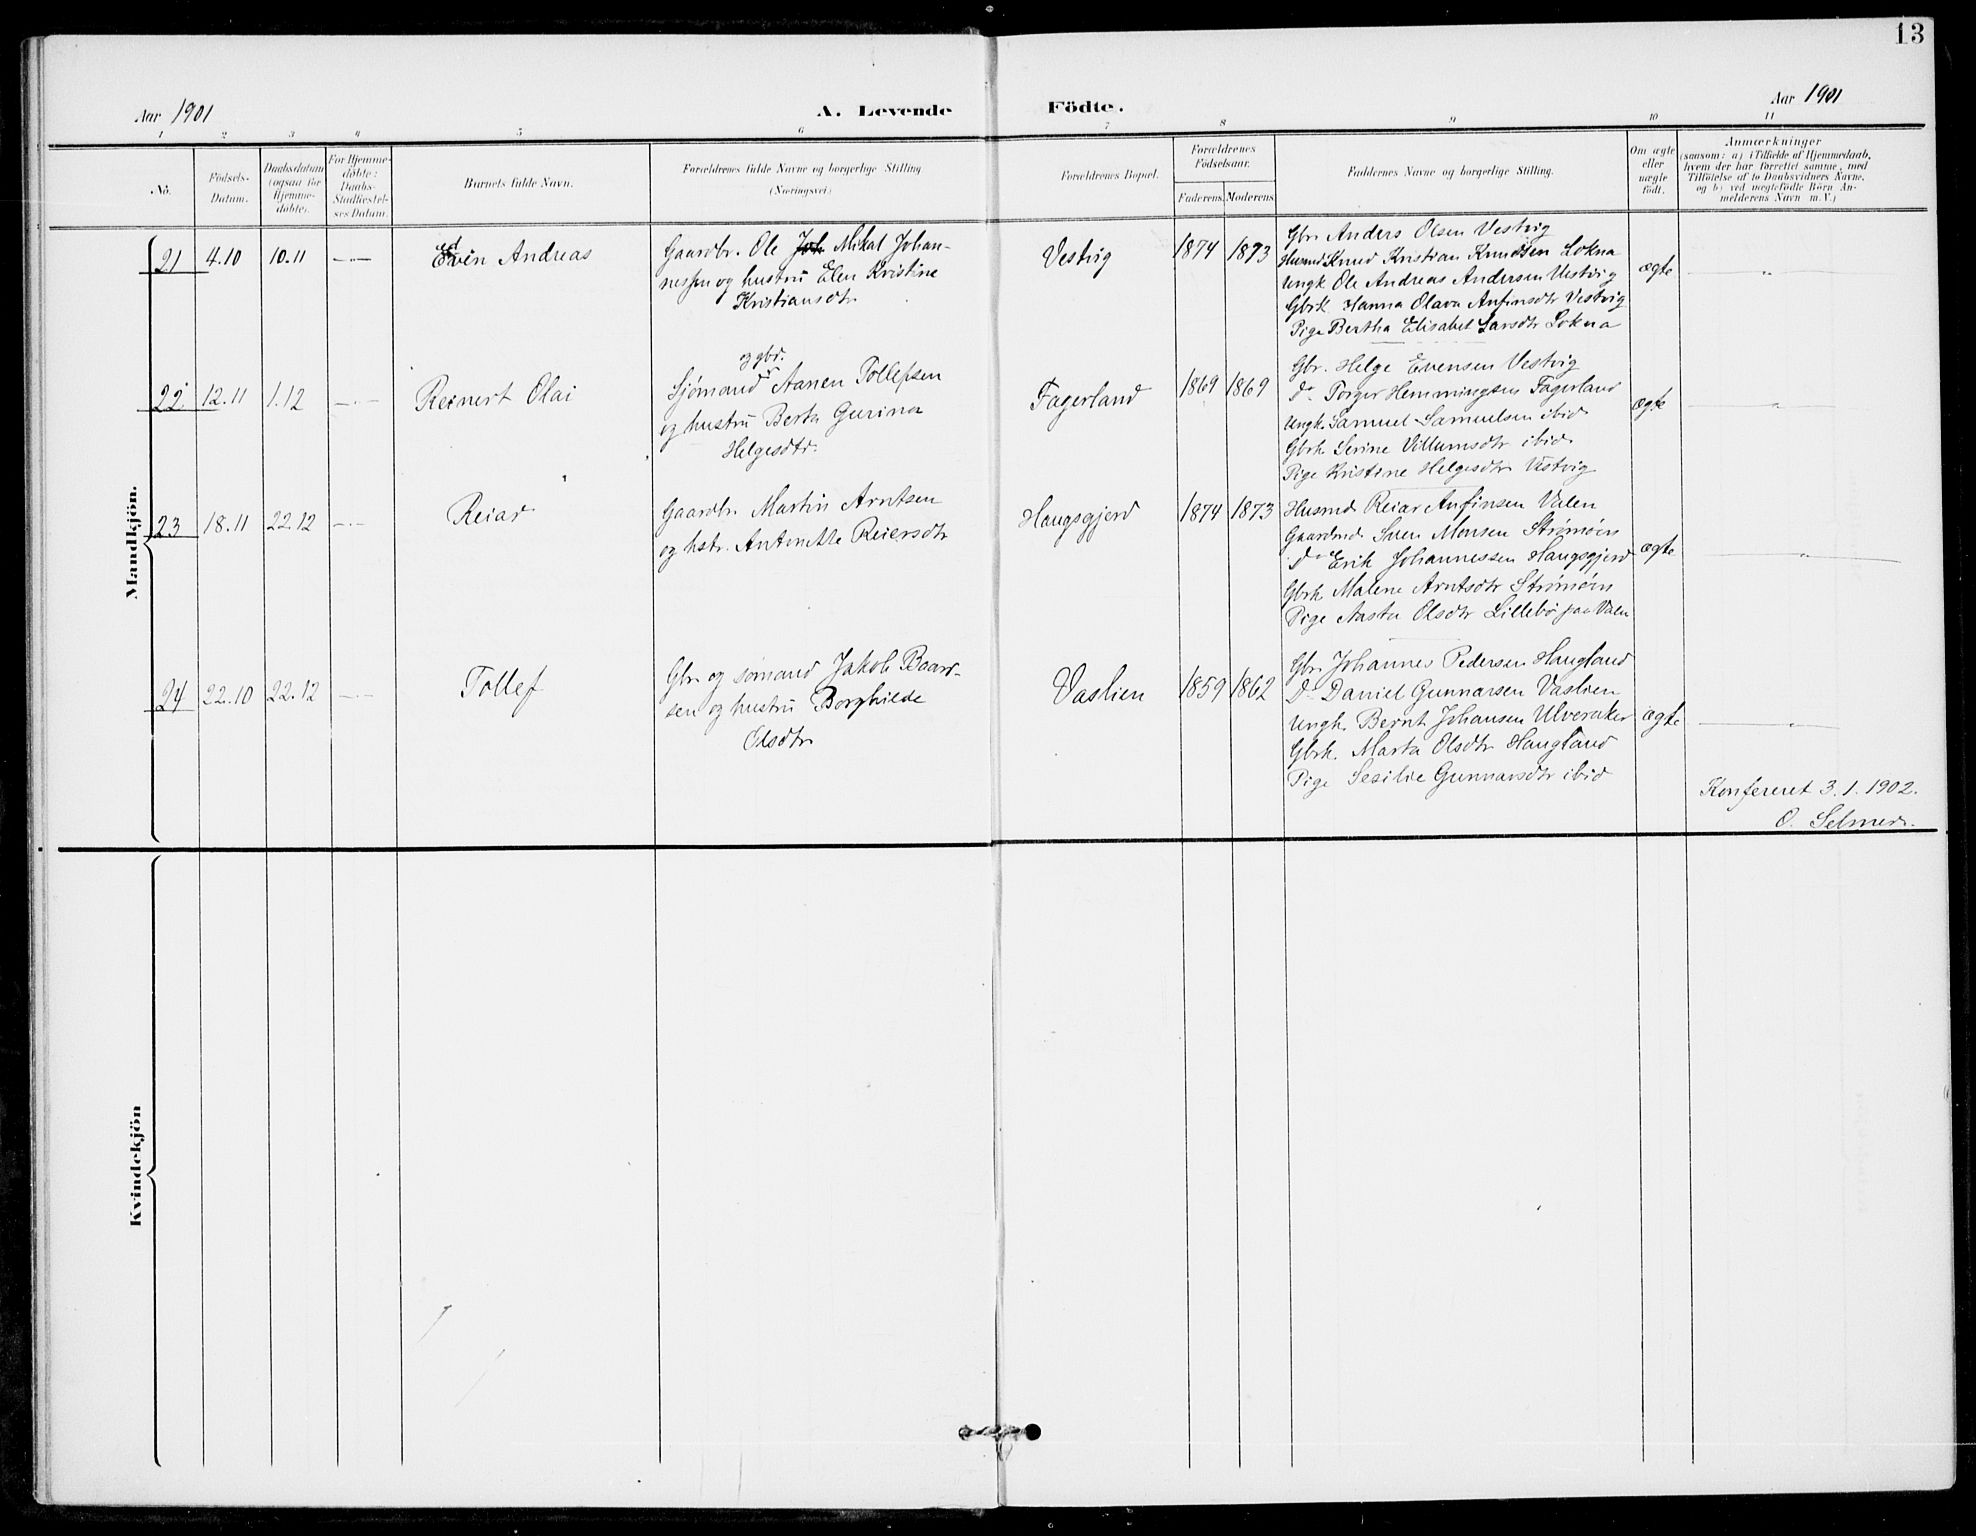 13
Aar 1901
A. Levende Födte.
Aar 1901
1 2 3 4 5 6 7 8 9 10 11
No.
Födsels-
Datum.
Daabsdatum
(ogsaa for
Hjemme-
döbte).
For Hjemme-
döbte:
Daabs-
Stadfæstel-
ses Datum.
Barnets fulde Navn.
Forældrenes fulde Navne og borgerlige Stilling
(Næringsvei.)
Forældrenes Bopæl.
Forældrenes
Födselsaar.
Faderens. Moderens.
Faddernes Navne og borgerlige Stilling.
Om ægte
eller
uægte
födt.
Anmærkninger
(saasom: a) i Tilfælde af Hjemmedaab,
hvem der har forrettet samme, med
Tilföielse af to Daabsvidners Navne,
og b) ved uægtefödte Börn An-
melderens Navn m. V.)
Mandkjön.
21 4.10 10.11 —"—
Even Andreas
Gaardbr. Ole Joh Mikal Johan-
nessen og hustru Elen Kristine
Kristiansdtr
Vestvig
1874 1873
Gbr Anders Olsen Vestvig
Husmd Knud Kristian Knudsen Lokna
Ungk Ole Andreas Andersen Vestvig
Gbrk Hanna Olava Anfinsdtr Vestvig
Pige Bertha Elisabet Larsdtr Lokna
ægte
—"—
22 12.11 1.12 —"—
Reinert Olai
og gbr.
Sjømand Aanen Tollefsen
og hustru Berta Gurina
Helgesdtr.
Fagerland
1869 1869
Gbr. Helge Evensen Vestvig
do Torger Hemmingsen Fagerland
Ungk. Samuel Samuelsen ibid
Gbrk Serine Villumsdtr ibid
Pige Kristine Helgesdtr Vestvig
ægte
—"—
23 18.11 22.12 —"—
Reiar
Gaardbr. Martin Arntsen
og hstr. Antonette Reiersdtr
Haugsgjerd
1874 1873
Husmd Reiar Anfinsen Valen
Gaardmd. Sven Monsen Strömöin
do Erik Johannessen Haugsgjerd
Gbrk Malene Arntsdtr Strömöin
Pige Aasta Olsdtr Lillebö paa Valen
ægte
—"—
24 22.10 22.12 —"—
Tollef
Gbr. og sømand Jakob Baard-
sen og hustru Borghilde
Olsdtr
Vaslien
1859 1862
Gbr Johannes Pedersen Haugland
Do Daniel Gunnarsen Vaslien
Ungk. Bernt Johansen Ulveraker
Gbrk. Marta Olsdtr Haugland
Pige Sesilie Gunnarsdtr ibid
ægte
—"—
Konfereret 3.1.1902.
O. Selmer.
Kvindekjön